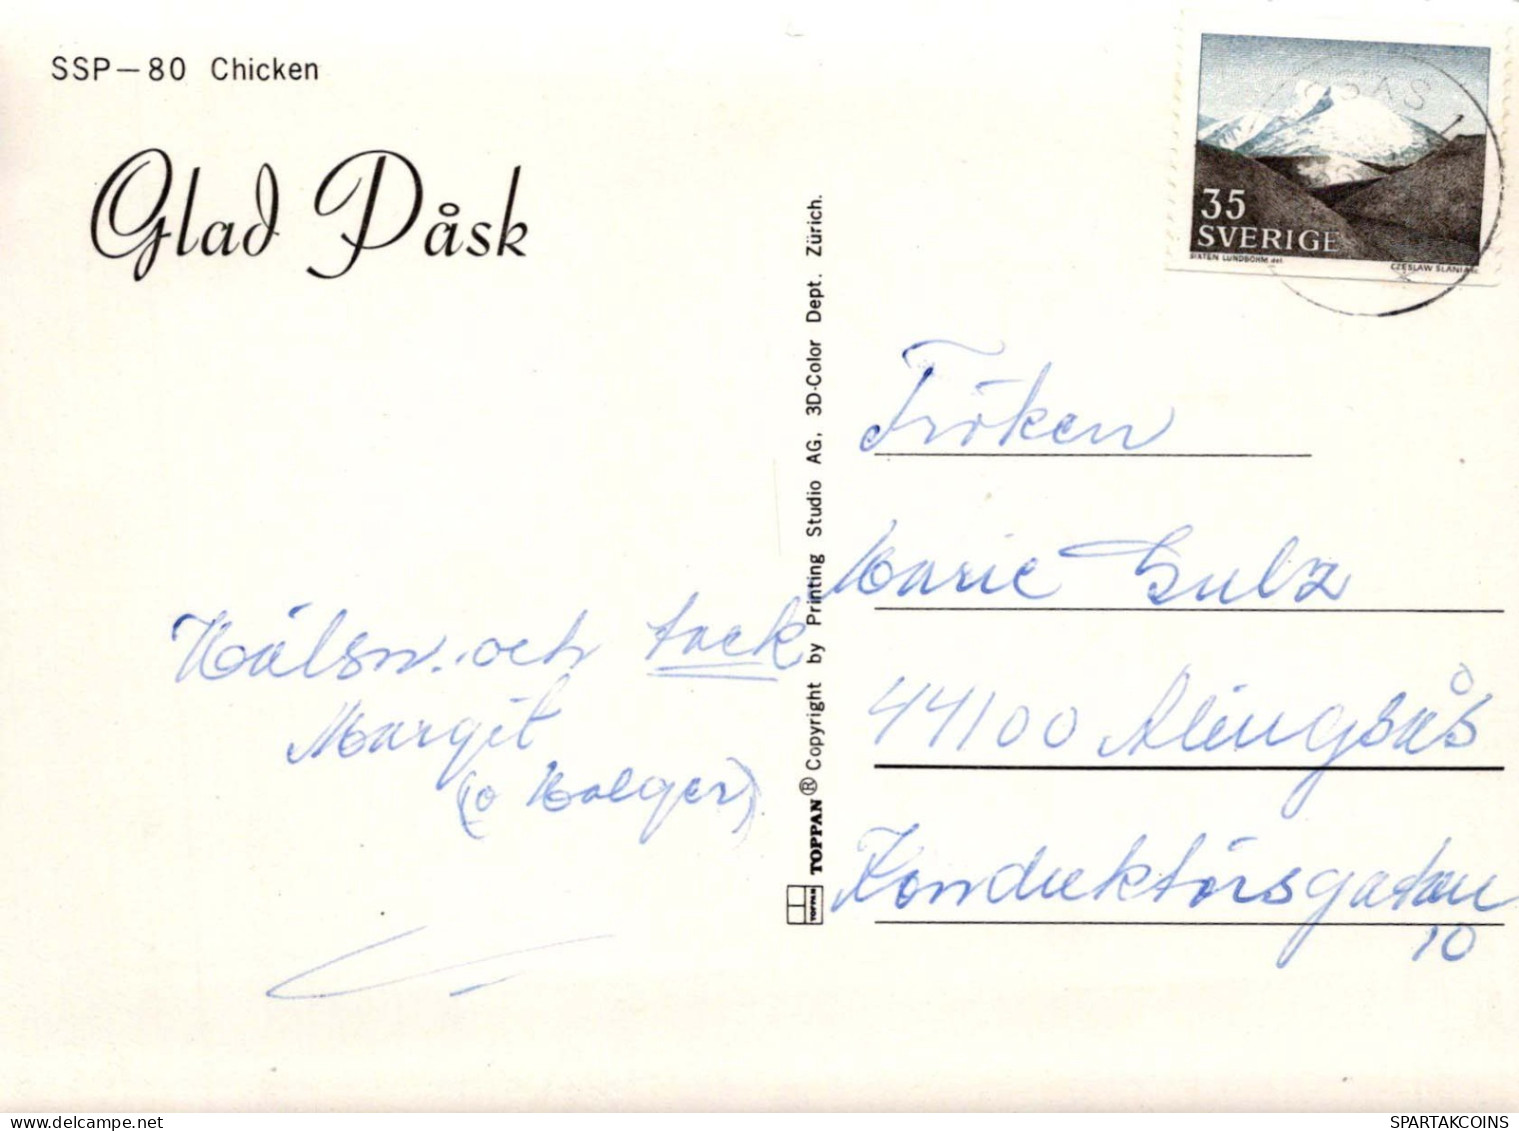 SSP—80 Chicken
Glad Påsk
35
SVERIGE
SIXTEN LUNDBOHM del.
CZESLAW SLANIA sc.
Hälsn. och tack
Margit
(o Holger)
TOPPAN® Copyright by Printing Studio AG, 3D-Color Dept. Zürich.
TOPPAN
Fröken
Marie Sulz
44100 Alingsås
Konduktörsgatan
10
SPARTAKCOINS
delcampe.net